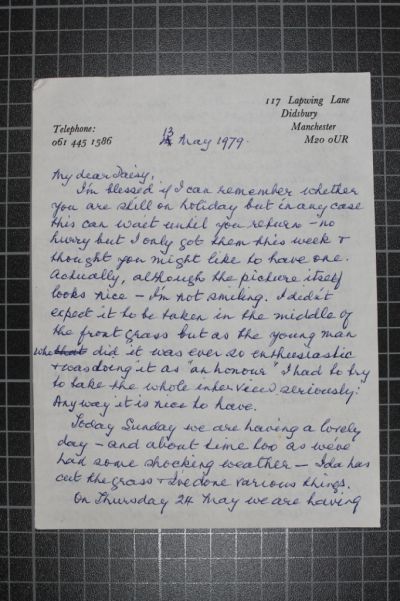 117 Lapwing Lane
Didsbury
Telephone: Manchester
061 445 1586 13 May 1979. M20 0UR
My dear Daisy,
I'm blessed if I can remember whether
you are still on holiday but in any case
this can wait until you return - no
hurry but I only got them this week &
thought you might like to have one.
Actually, although the picture itself
looks nice - I'm not smiling. I didn't
expect it to be taken in the middle of
the front grass but as the young man
who that did it was ever so enthusiastic
& was doing it as "an honour" I had to try
to take the whole interview seriously!
Anyway it is nice to have.
Today Sunday we are having a lovely
day - and about time too as we've
had some shocking weather - Ida has
cut the grass & I've done various things.
On Thursday 24 May we are having